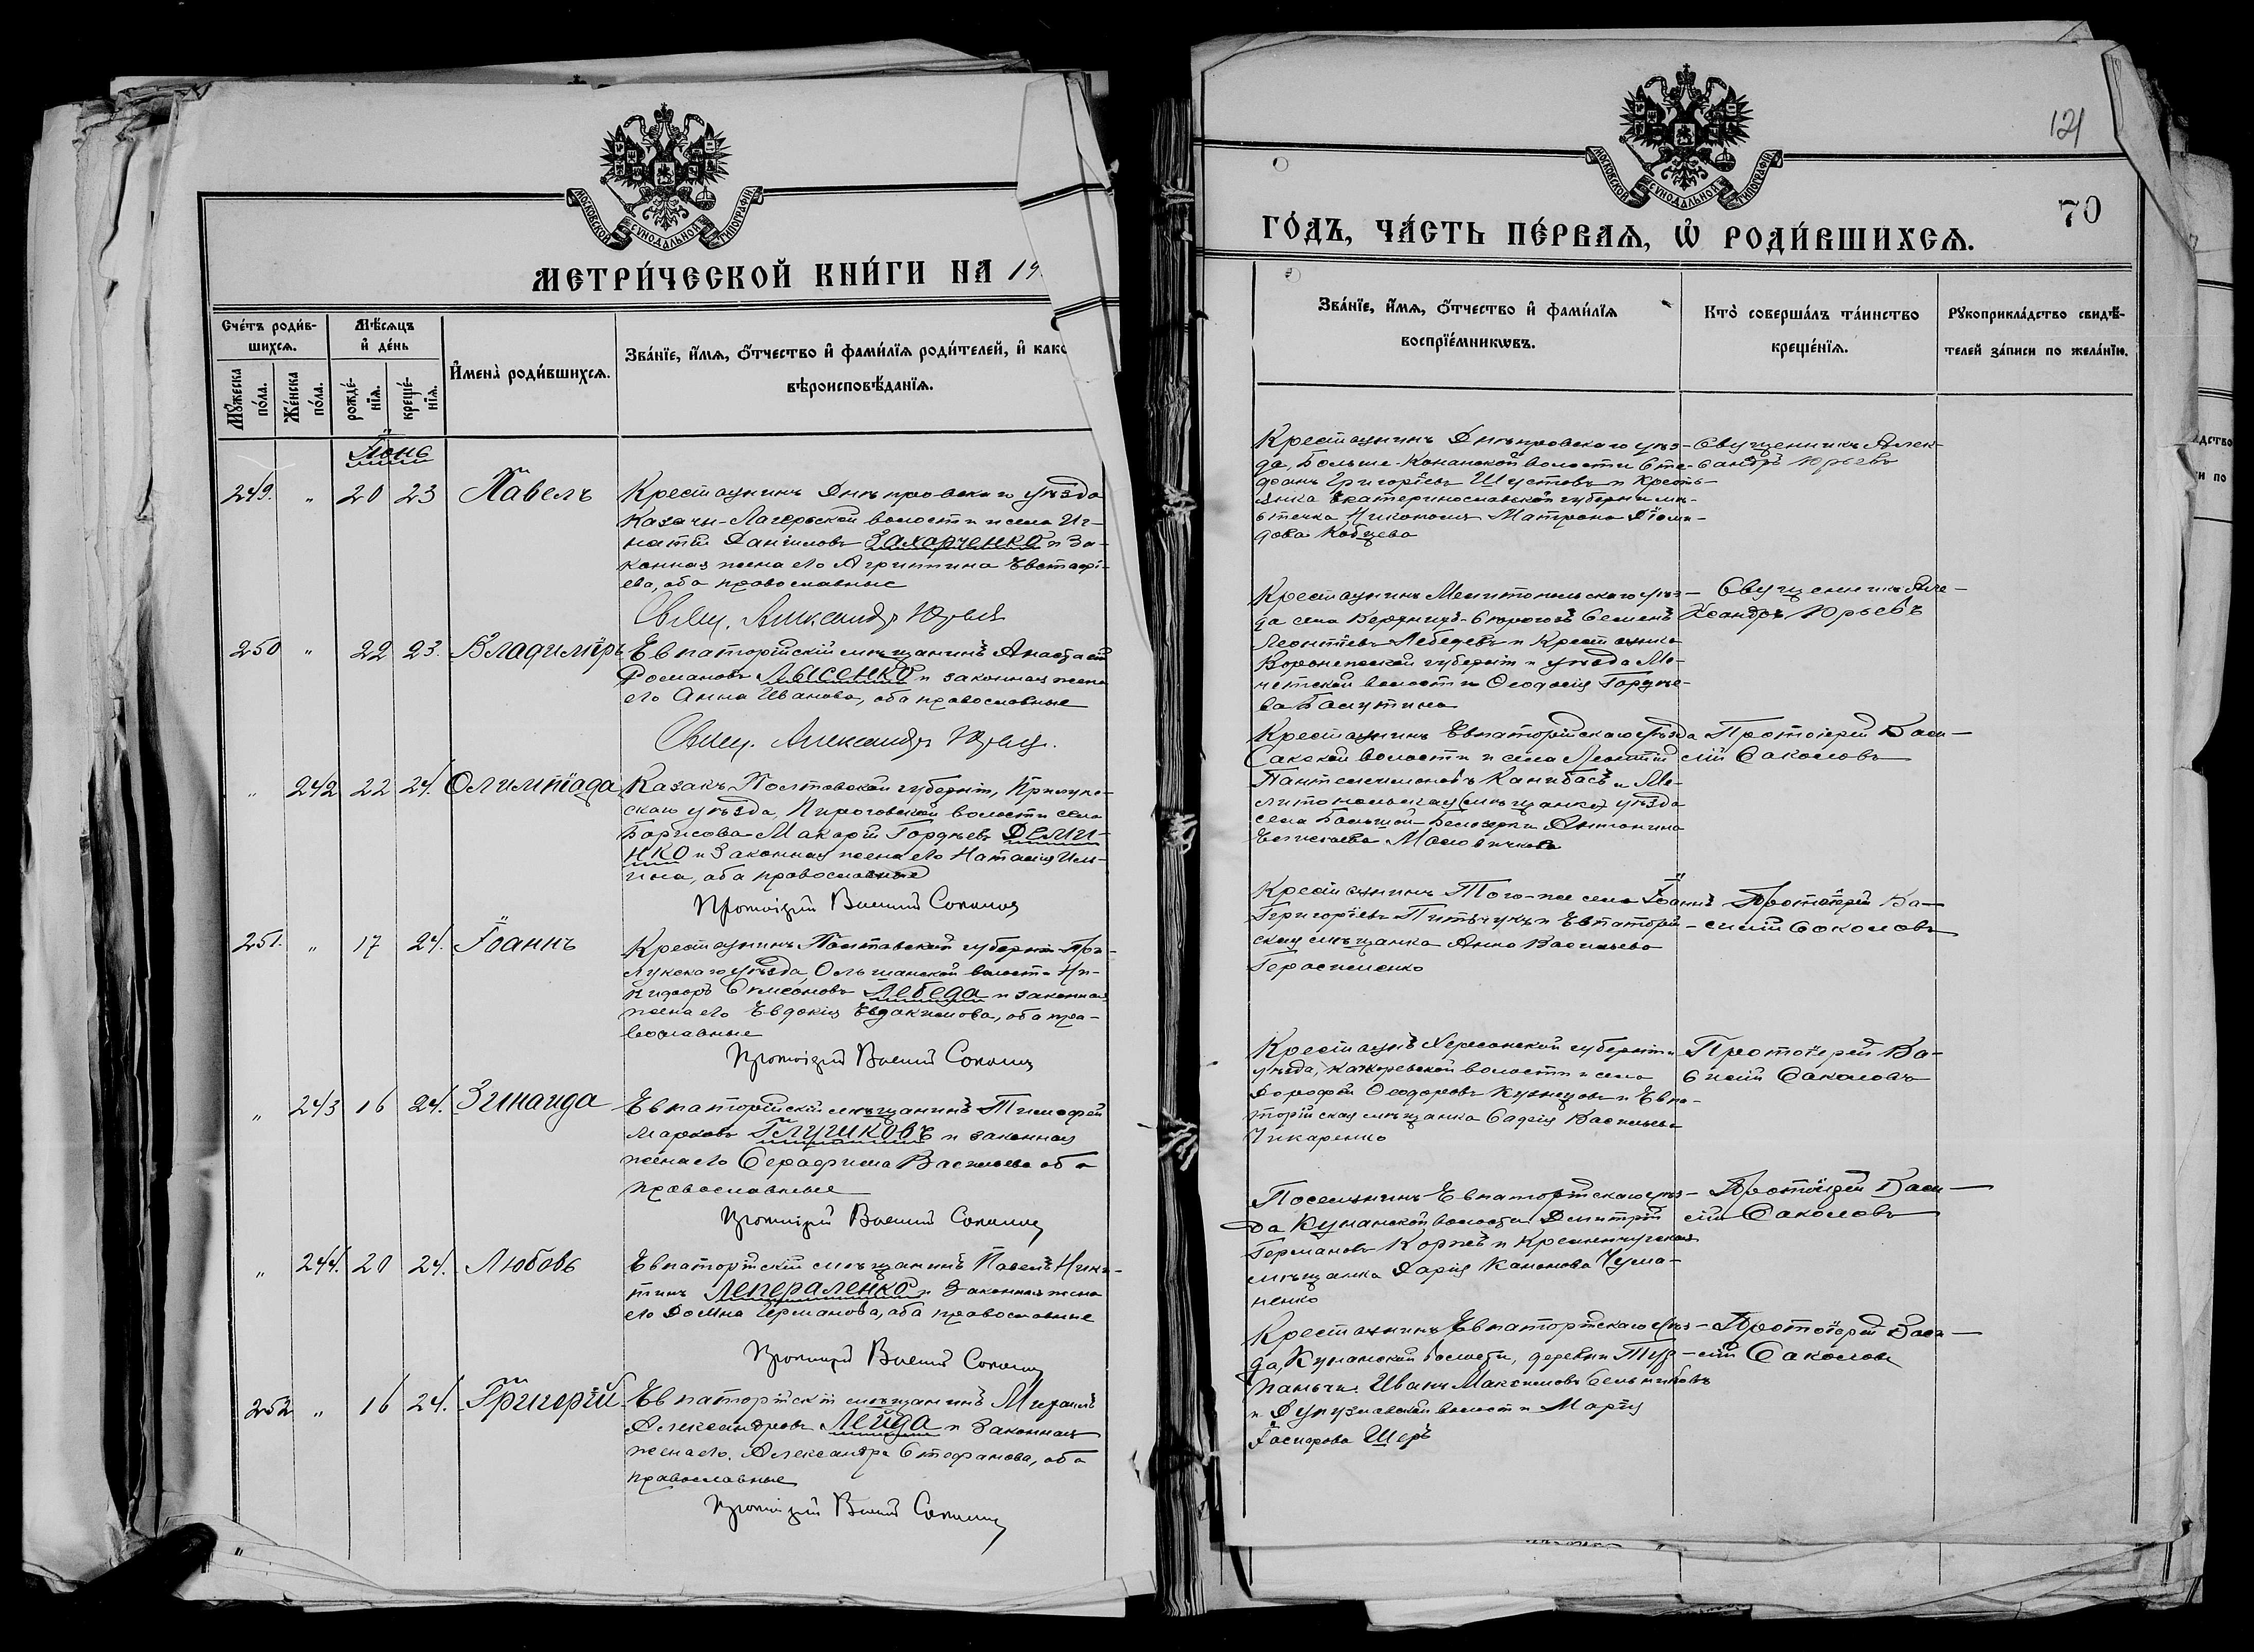 МОСКОВСКОЙ СѴНОДАЛЬНОЙ ТИПОГРАФІИ
МЕТРИ́ЧЕСКОЙ КНИ́ГИ НА 19
Сче́тъ роди́в-
шихся.
Мѣ́сяцъ
и҆ де́нь
И҆мена̀ роди́вшихся.
Зва́нїе, и҆́мя, ѻ҆́тчество и҆ фами́лїя роди́телей, и҆ како
вѣроисповѣ́данїя.
Мꙋ́жеска
по́ла.
Же́нска
по́ла.
рожде́-
нїя.
креще́-
нїя.
Іюнь
249. " 20 23 Павелъ
Крестьянинъ Днѣпровскаго уѣзда
Казачье-Лагерьской волости и села Иг-
натій Даніиловъ Захарченко и за-
конная жена его Агриппина Евстафі-
ева, оба православные
Свящ. Александръ Юрьевъ
250 " 22 23. Владиміръ
Евпаторійскій мѣщанинъ Анастасій
Романовъ Лысенко и законная жена
его Анна Иванова, оба православные
Свящ. Александръ Юрьевъ.
" 242 22 24. Олимпіада
Казакъ Полтавской губерніи, Прилукс-
скаго уѣзда, Пироговской волости села
Борисова Макарій Гордѣевъ Деми-
нко и законная жена его Наталія Иль-
ина, оба православные
Протоіерей Василій Соколовъ
251. " 17 24. Іоаннъ
Крестьянинъ Полтавской губерніи При-
лукскаго уѣзда, Ольшанской волости Ни-
кифоръ Симеоновъ Лебеда и законная
жена его Евдокія Евдокимова, оба пра-
вославные
Протоіерей Василій Соколовъ
" 243 16 24. Зинаида
Евпаторійскій мѣщанинъ Тимофей
Марковъ Глушковъ и законная
жена его Серафима Васильева оба
православные
Протоіерей Василій Соколовъ
" 244. 20 24. Любовь
Евпаторійскій мѣщанинъ Павелъ Ники-
тинъ Лепераленко и законная жена
его Домна Германова, оба православные
Протоіерей Василій Соколовъ
252 " 16 24. Григорій
Евпаторійскій мѣщанинъ Михаилъ
Александровъ Лейда и законная
жена его Александра Стефанова, оба
православные
Протоіерей Василій Соколовъ
121
70
МОСКОВСКОЙ СѴНОДАЛЬНОЙ ТИПОГРАФІИ
ГО́ДЪ, ЧА́СТЬ ПЕ́РВАЯ, Ѡ҆ РОДИ́ВШИХСЯ.
Зва́нїе, и҆́мя, ѻ҆́тчество и҆ фами́лїя
воспрїе́мникѡвъ.
Кто̀ соверша́лъ та́инство
креще́нїя.
Рꙋкоприкла́дство свидѣ́-
телей за́писи по жела́нїю.
Крестьянинъ Днѣпровскаго уѣз-
да, Больше-Копанской волости Сте-
фанъ Григоріевъ Шустовъ и кресть-
янка Екатеринославской губерніи мѣ-
стечка Никополя Матрона Діоми-
дова Кобцева
Священникъ Алек-
сандръ Юрьевъ
Крестьянинъ Мелитопольскаго уѣз-
да села Семенъ
Леонтіевъ Лебедевъ и крестьянка
Воронежской губерніи и уѣзда Мо-
четской волости Ѳеодосія Гордѣе-
ва Балутина
Священникъ Але-
ксандръ Юрьевъ
Крестьянинъ Евпаторійскаго уѣзда
Сакской волости и села Леонтій
Пантелеимоновъ Канибасъ и Ме-
литопольская (мѣщанка) уѣзда
села Большой-Белозерки Антонина
Маловичкова
Протоіерей Васи-
лій Соколовъ
Крестьянинъ того-же села Іоаннъ
Григоріевъ и Евпаторій-
ская мѣщанка Анна Васильева
Герасименко
Протоіерей Ва-
силій Соколовъ
Крестьянъ Херсонской губерніи и
уѣзда, Качкаревской волости и села
Дорофей Ѳеодоровъ Кузнецовъ и Евпа-
торійская мѣщанка Васильева
Чикаренко
Протоіерей Ва-
силій Соколовъ
Поселянинъ Евпаторійскаго уѣз-
да Курманской волости Димитрій
Германовъ Коржъ и Кременчугская
мѣщанка Дарія Кононова Чума-
ненко
Протоіерей Васи-
лій Соколовъ
Крестьянинъ Евпаторійскаго уѣз-
да, Курманской волости, деревни
Иванъ Максимовъ Сельниковъ
и волости Марія
Іосифова Шеръ
Протоіерей Васи-
лій Соколовъ